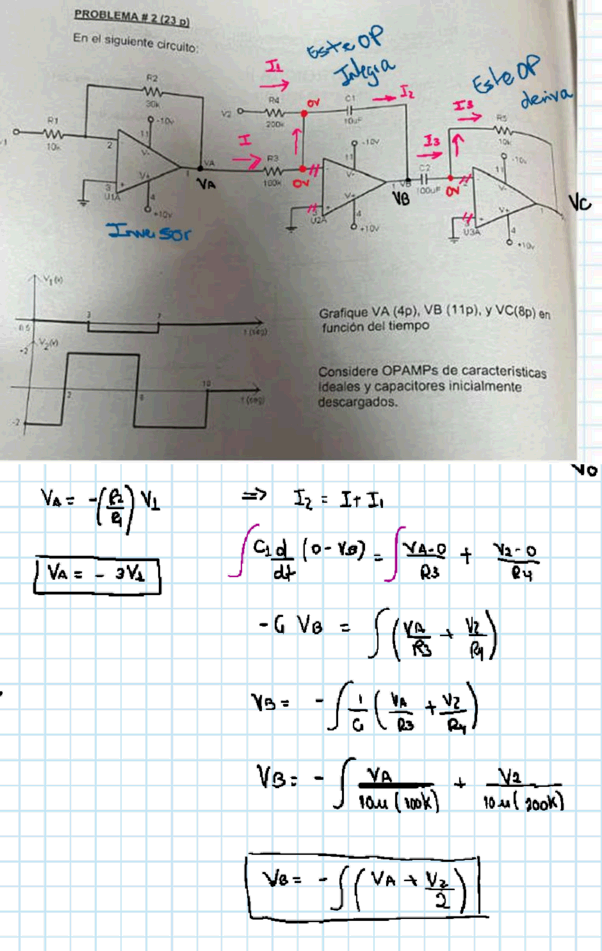 PROBLEMA # 2 (23 p)
En el siguiente circuito:
Este OP
Integra
Este OP
deriva
I1
I2
I3
R2
30k
R1
10k
-10v
11
V-
2
3
V+
4
+10v
U1A
1
VA
VA
Inversor
V2
R4
200k
0V
C1
10uF
I
R3
100k
0V
-10v
11
V-
V+
4
+10v
U2A
1
VB
VB
I3
C2
100uF
0V
R5
10k
-10v
11
V-
V+
4
+10v
U3A
1
VC
V1(v)
0.5
3
7
t (seg)
V2(v)
2
-2
2
10
t (seg)
Grafique VA (4p), VB (11p), y VC(8p) en
función del tiempo
Considere OPAMPs de características
ideales y capacitores inicialmente
descargados.
Vo
VA = -(R2/R1) V1
VA = - 3V1
=> I2 = I + I1
∫ C1 d/dt (0 - VB) = ∫ VA-0/R3 + V2-0/R4
-C1 VB = ∫ (VA/R3 + V2/R4)
VB = - ∫ 1/C1 (VA/R3 + V2/R4)
VB = - ∫ VA/10u(100k) + V2/10u(200k)
VB = - ∫ (VA + V2/2)